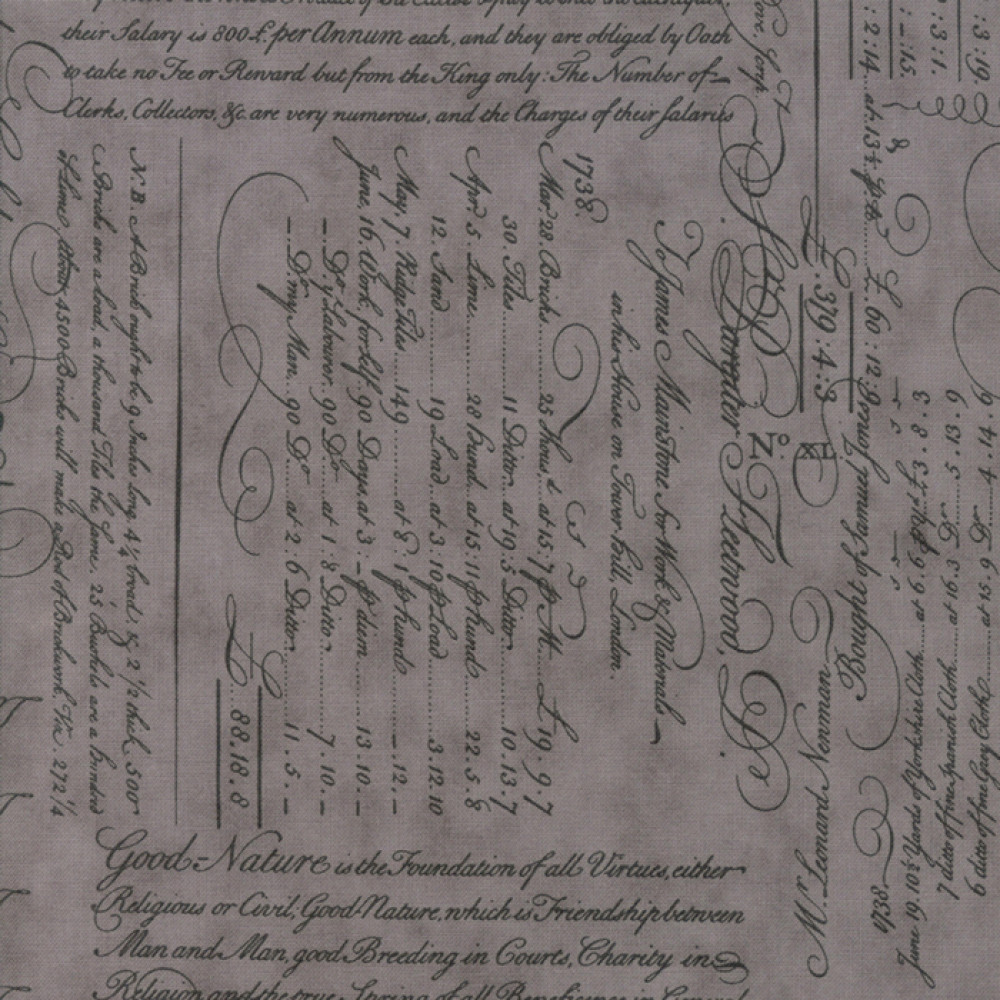 their Salary is 800£. per Annum each, and they are obliged by Oath
to take no Fee or Reward but from the King only: The Number of
Clerks, Collectors, &c. are very numerous, and the Charges of their Salaries
Sir
Fleetwood, P.
To James Mainstone for Work & Materials
in his House on Tower-hill, London.
1738.
Mar. 28. Bricks.... 25 Thous.d at 15:7 p M.... £19.9.7
30. Tiles...... 11 Ditto.. at 19:5 Ditto.... 10.13.7
Apr. 5. Lime.... 28 Hund. at 15:11 p hund. 22.5.8
12. Sand...... 19 Load. at 3:10 p Load... 3.12.10
May. 7. Ridge Tiles.... 149........ at 8:1 p hund. _.12._
June. 16. Work, for self. 90 Days, at 3:_ p diem.... 13.10._
_ D.o y.e Labourer. 90 D.o... at 1:8 Ditto...... 7.10._
_ D.o my Man.. 90 D.o.... at 2:6 Ditto...... 11.5._
£..88.18.8
N.B. A Brick ought to be 9 Inches long, 4¼ broad, & 2½ thick, 500
Bricks are a Load, a thousand Tiles the same. 25 Bushels are a hundred
of Lime. About 4500 Bricks will make a Rod of Brickwork, Viz. 272¼
£. 379:4:3
£.60:12:
N.º XL
Mr. Leonard Newman
Bought of Samuel Jones
1738.
June 19. 10½ Yards of Yorkshire Cloth... at 6.6 p y.d £3.8.3
7 ditto of fine Spanish Cloth... at 16.3 D.o.... 5.13.9
6 ditto of fine Grey Cloth.... at 15.9 D.o.... 4.14.6
Good=Nature is the Foundation of all Virtues, either
Religious or Civil; Good-Nature, which is Friendship between
Man and Man, good Breeding in Courts, Charity in
Religion and the true Spring of all Beneficence in General